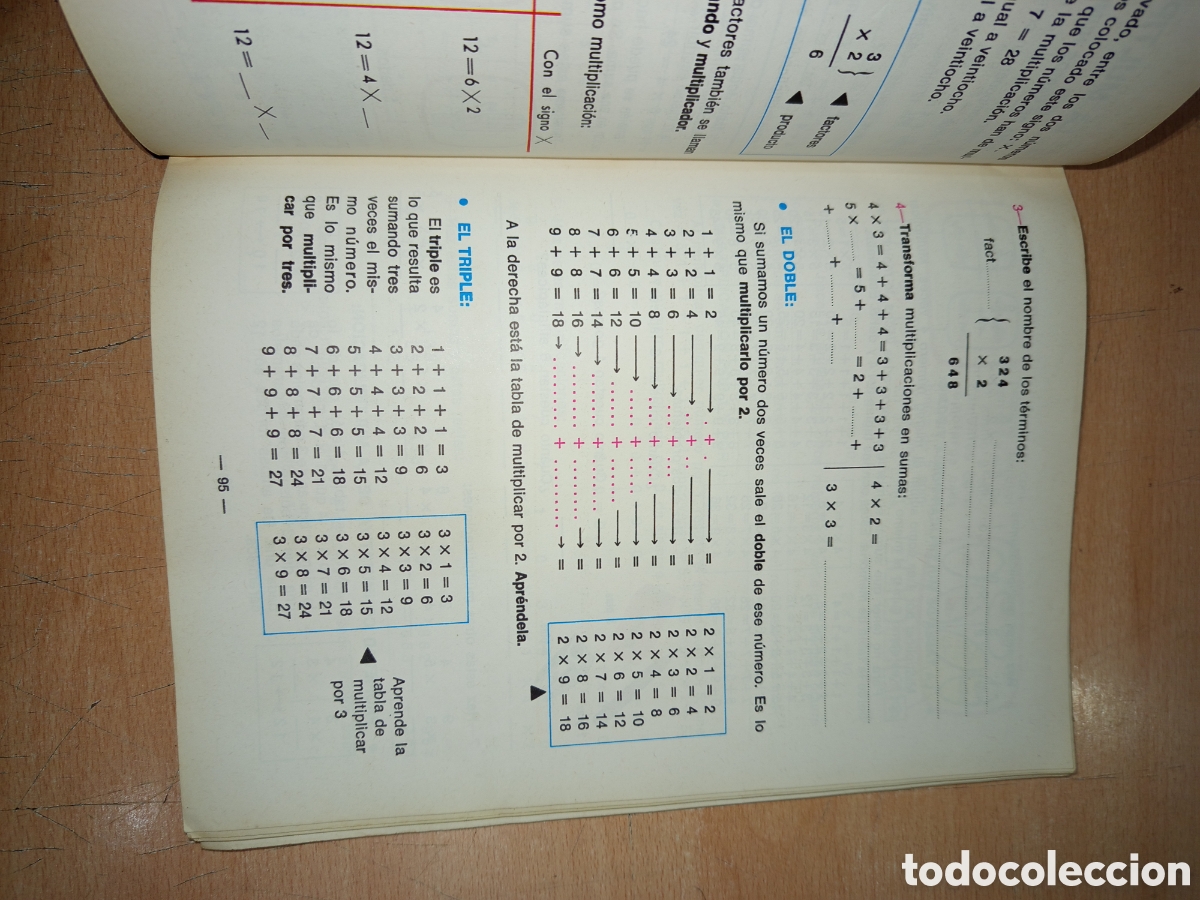 vado, entre los dos
s colocado este signo: x.
que los números han de
la multiplicación.
7 = 28
ual a veintiocho.
l a veintiocho.
3
× 2
6
factores
producto
actores también se llaman
ndo y multiplicador.
omo multiplicación:
Con el signo X
12 = 6 X 2
12 = 4 X _
12 = _ X _
3—Escribe el nombre de los términos:
fact. .......... {
324
× 2
648
4—Transforma multiplicaciones en sumas:
4 × 3 = 4 + 4 + 4 = 3 + 3 + 3 + 3 | 4 × 2 = ..........
5 × .......... = 5 + .......... = 2 + .......... +
+ .......... + .......... + .......... | 3 × 3 = ..........
• EL DOBLE:
Si sumamos un número dos veces sale el doble de ese número. Es lo
mismo que multiplicarlo por 2.
1 + 1 = 2 → . + . → = 2 × 1 = 2
2 + 2 = 4 → .. + .. → = 2 × 2 = 4
3 + 3 = 6 → ... + ... → = 2 × 3 = 6
4 + 4 = 8 → .... + .... → = 2 × 4 = 8
5 + 5 = 10 → ..... + ..... → = 2 × 5 = 10
6 + 6 = 12 → ...... + ...... → = 2 × 6 = 12
7 + 7 = 14 → ....... + ....... → = 2 × 7 = 14
8 + 8 = 16 → ........ + ........ → = 2 × 8 = 16
9 + 9 = 18 → ......... + ......... → = 2 × 9 = 18
A la derecha está la tabla de multiplicar por 2. Apréndela.
• EL TRIPLE:
El triple es
lo que resulta
sumando tres
veces el mis-
mo número.
Es lo mismo
que multipli-
car por tres.
1 + 1 + 1 = 3
2 + 2 + 2 = 6
3 + 3 + 3 = 9
4 + 4 + 4 = 12
5 + 5 + 5 = 15
6 + 6 + 6 = 18
7 + 7 + 7 = 21
8 + 8 + 8 = 24
9 + 9 + 9 = 27
3 × 1 = 3
3 × 2 = 6
3 × 3 = 9
3 × 4 = 12
3 × 5 = 15
3 × 6 = 18
3 × 7 = 21
3 × 8 = 24
3 × 9 = 27
Aprende la
tabla de
multiplicar
por 3
— 95 —
todocoleccion